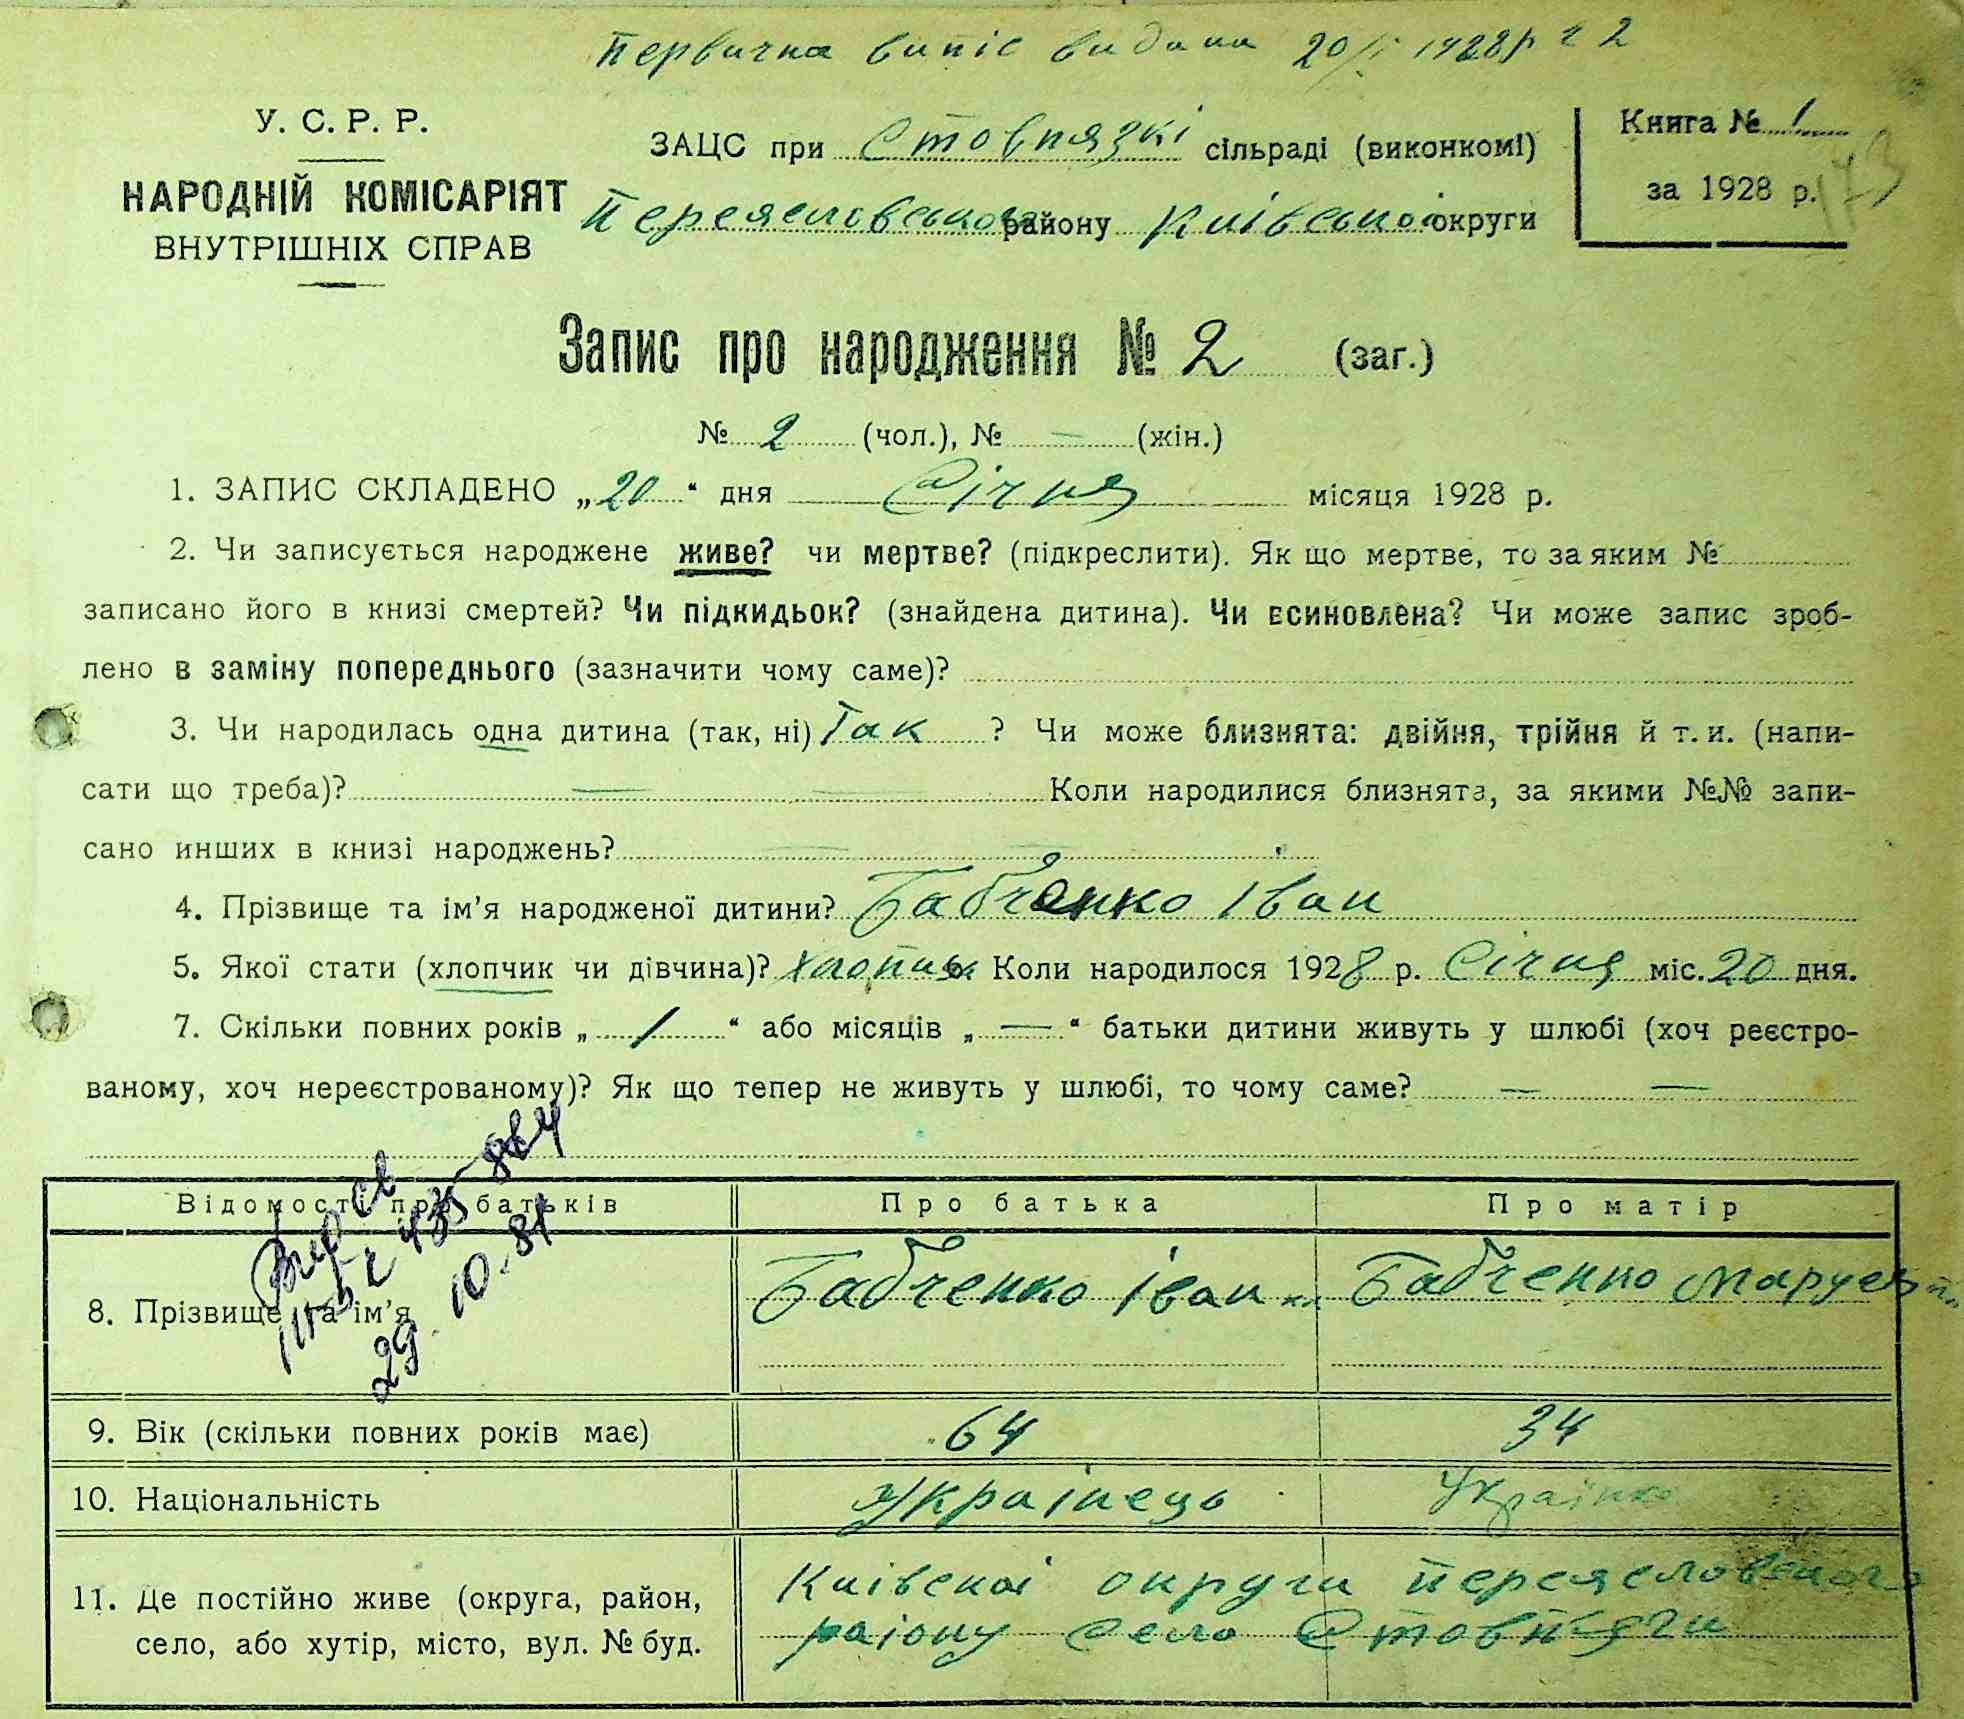 Первична випіс видана 20/I 1928 р ч 2
У. С. Р. Р.
НАРОДНІЙ КОМІСАРІЯТ
ВНУТРІШНІХ СПРАВ
ЗАЦС при Стовпязкі сільраді (виконкомі)
Переясловського району Київської округи
Книга № 1
за 1928 р.
173
Запис про народження № 2 (заг.)
№ 2 (чол.), № — (жін.)
1. ЗАПИС СКЛАДЕНО „20“ дня Січня місяця 1928 р.
2. Чи записується народжене живе? чи мертве? (підкреслити). Як що мертве, то за яким №
записано його в книзі смертей? Чи підкидьок? (знайдена дитина). Чи всиновлена? Чи може запис зроб-
лено в заміну попереднього (зазначити чому саме)?
3. Чи народилась одна дитина (так, ні) Так ? Чи може близнята: двійня, трійня й т. и. (напи-
сати що треба)? — — Коли народилися близнята, за якими №№ запи-
сано инших в книзі народжень? — —
4. Прізвище та ім'я народженої дитини? Бабченко Іван
5. Якої стати (хлопчик чи дівчина)? Хлопчик Коли народилося 1928 р. Січня міс. 20 дня.
7. Скільки повних років „ 1 “ або місяців „ — “ батьки дитини живуть у шлюбі (хоч реєстро-
ваному, хоч нереєстрованому)? Як що тепер не живуть у шлюбі, то чому саме? — —
Відомості про батьків Про батька Про матір
8. Прізвище та ім'я Бабченко Іван Бабченко Маруся
29.10.81
9. Вік (скільки повних років має) 64 34
10. Національність Українець Українка
11. Де постійно живе (округа, район, Київскої округи Переясловского
село, або хутір, місто, вул. № буд. району село Стовпяги